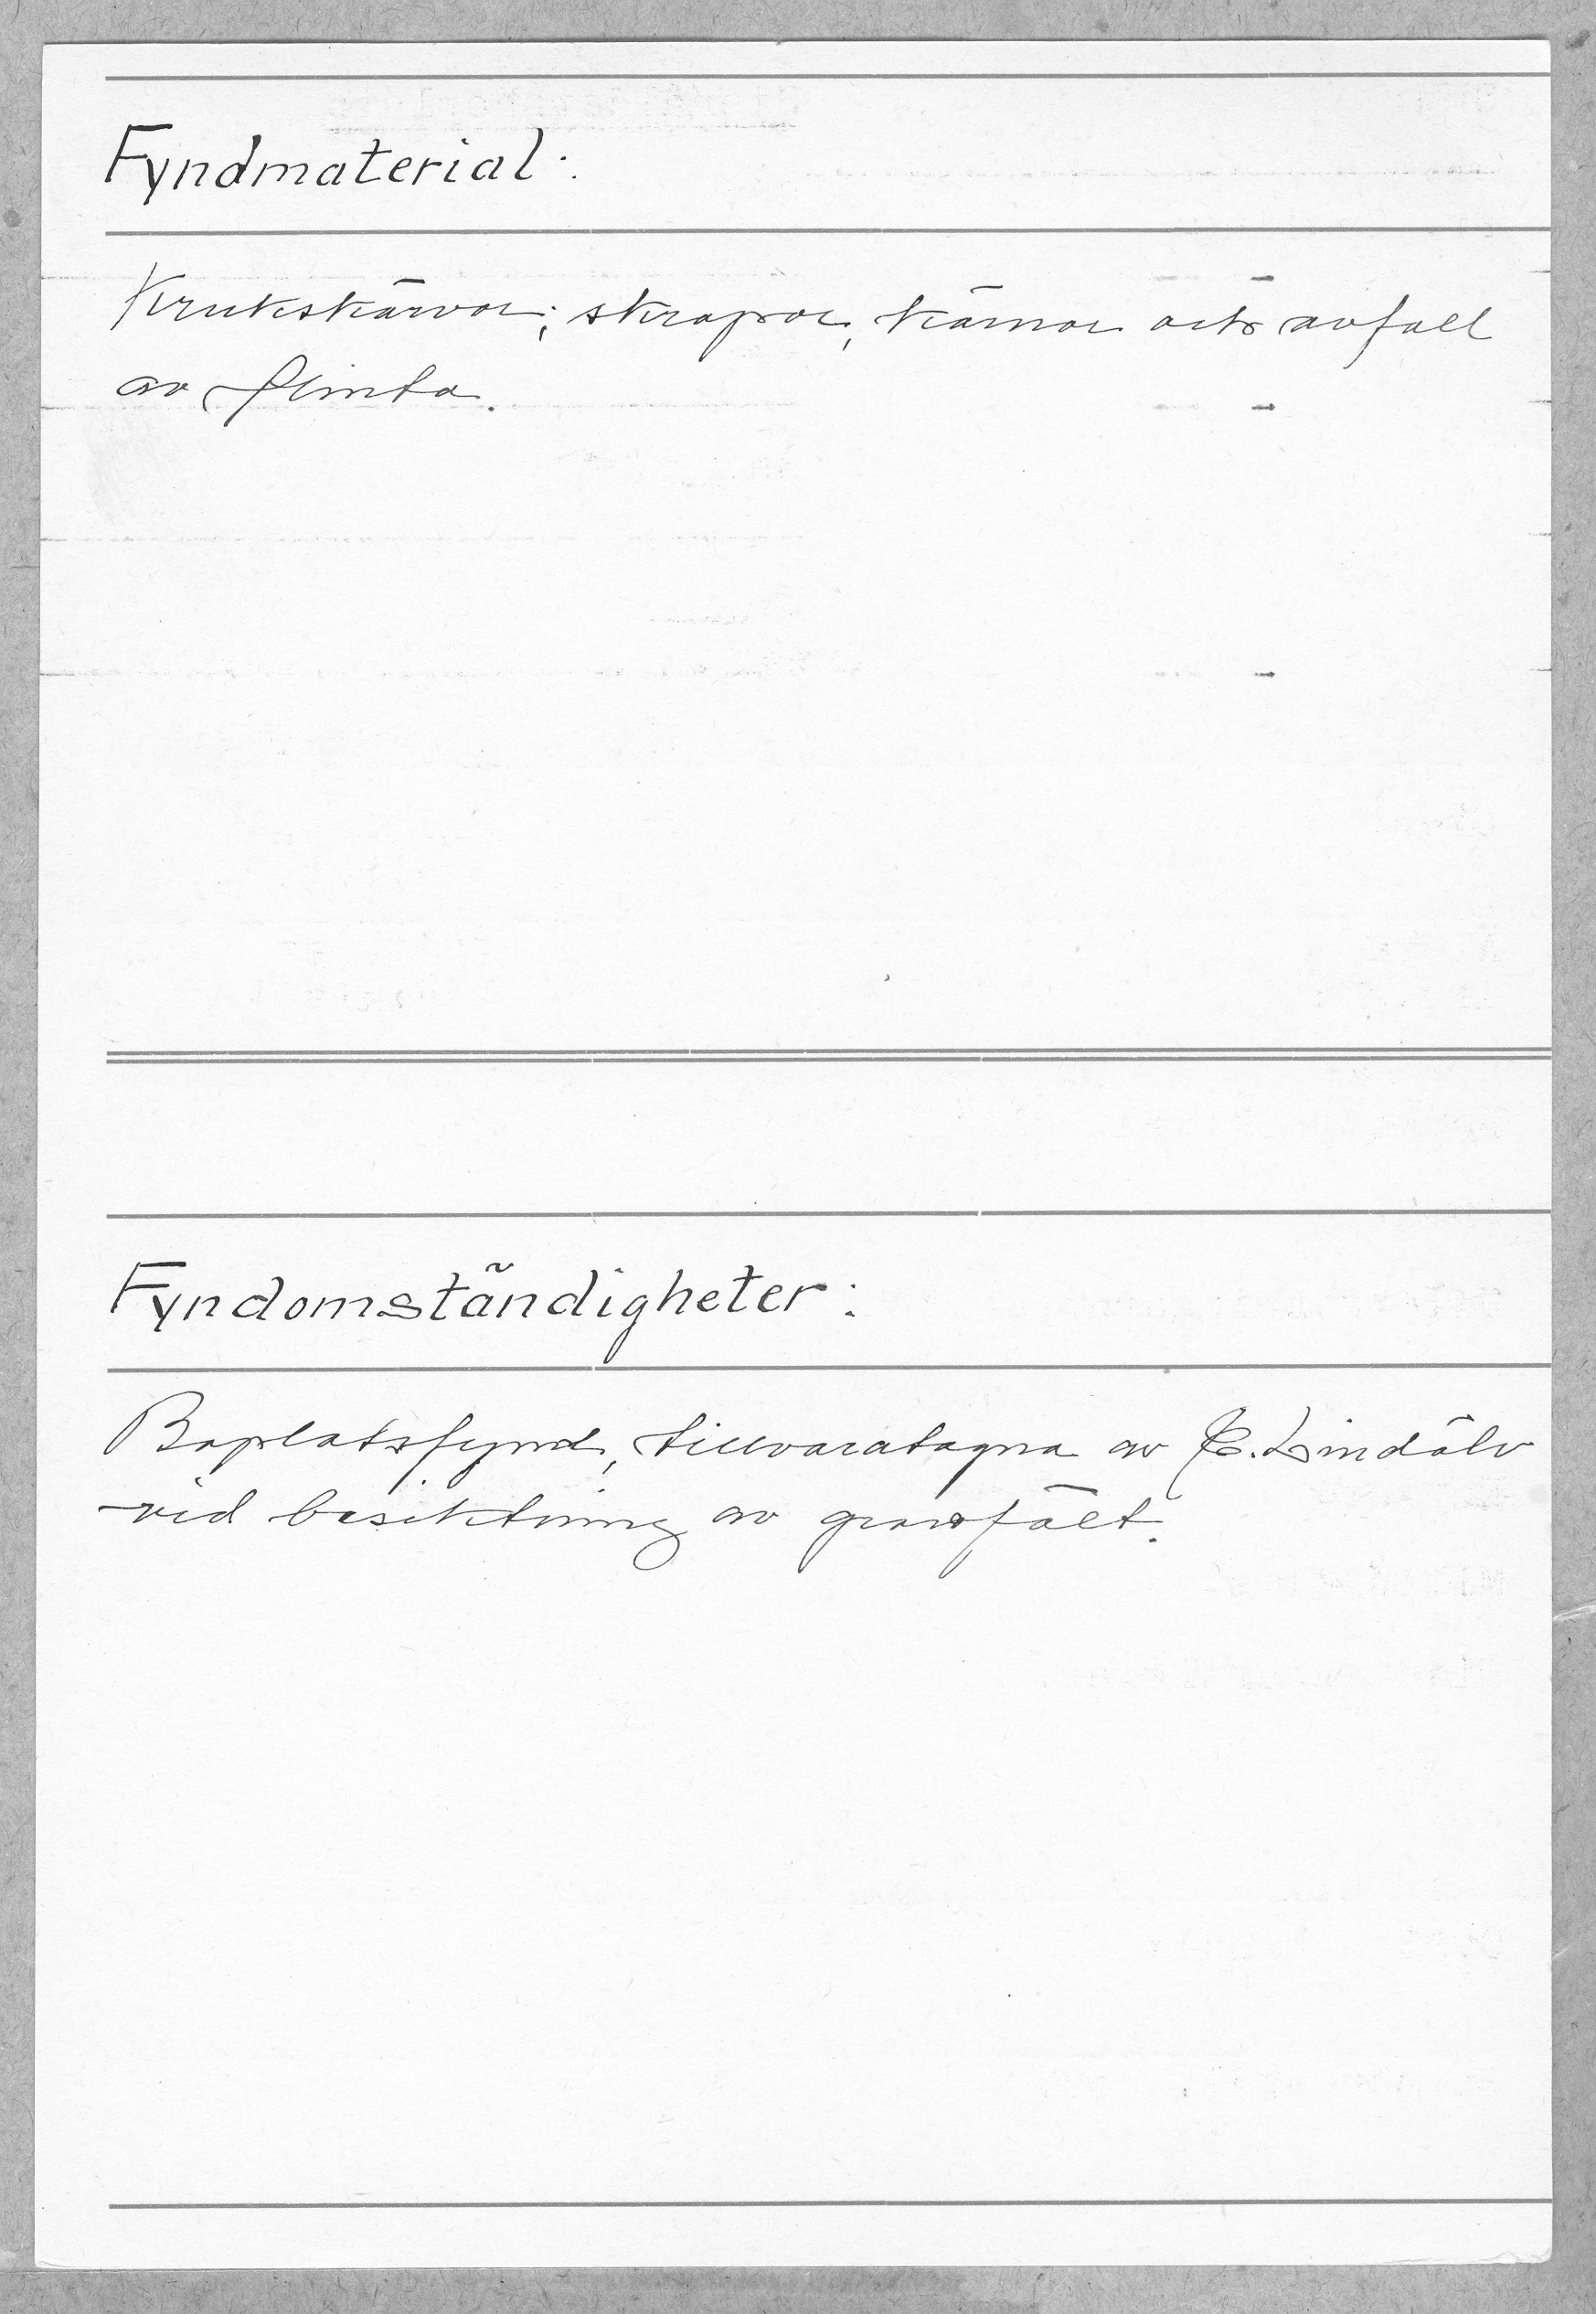 Fyndmaterial:
Krukskärvor; skrapor, kärnor och avfall
av flinta.
Fyndomständigheter:
Boplatsfynd, tillvaratagna av E. Lindälv
vid besiktning av gravfält.